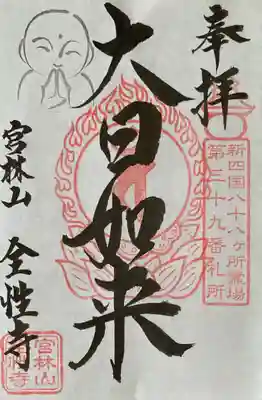 奉拝
新四国八十八ヶ所霊場
第三十九番札所
大日如来
宮林山
全性寺
宮林山
全性寺